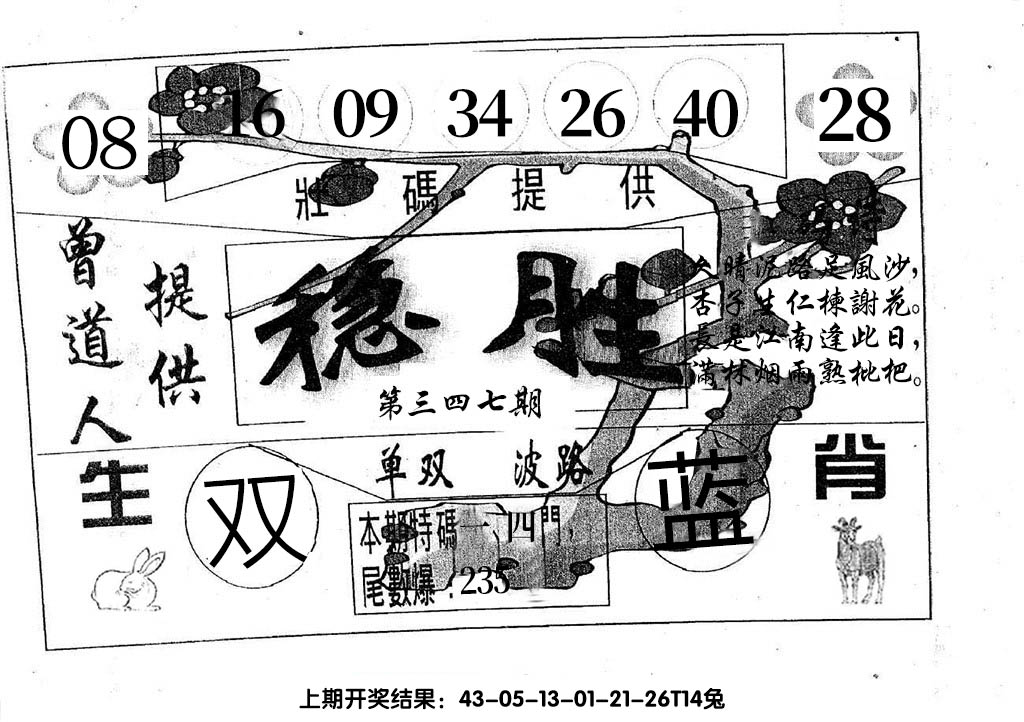 08 16 09 34 26 40 28
壯碼提供
特
曾道人
提供
稳胜
第三四七期
久晴泥路足風沙，
杏子生仁楝謝花。
長是江南逢此日，
滿林烟雨熟枇杷。
生肖
单双 波路
双 蓝
本期特碼一、四門，
尾數爆：235
上期开奖结果：43-05-13-01-21-26T14兔